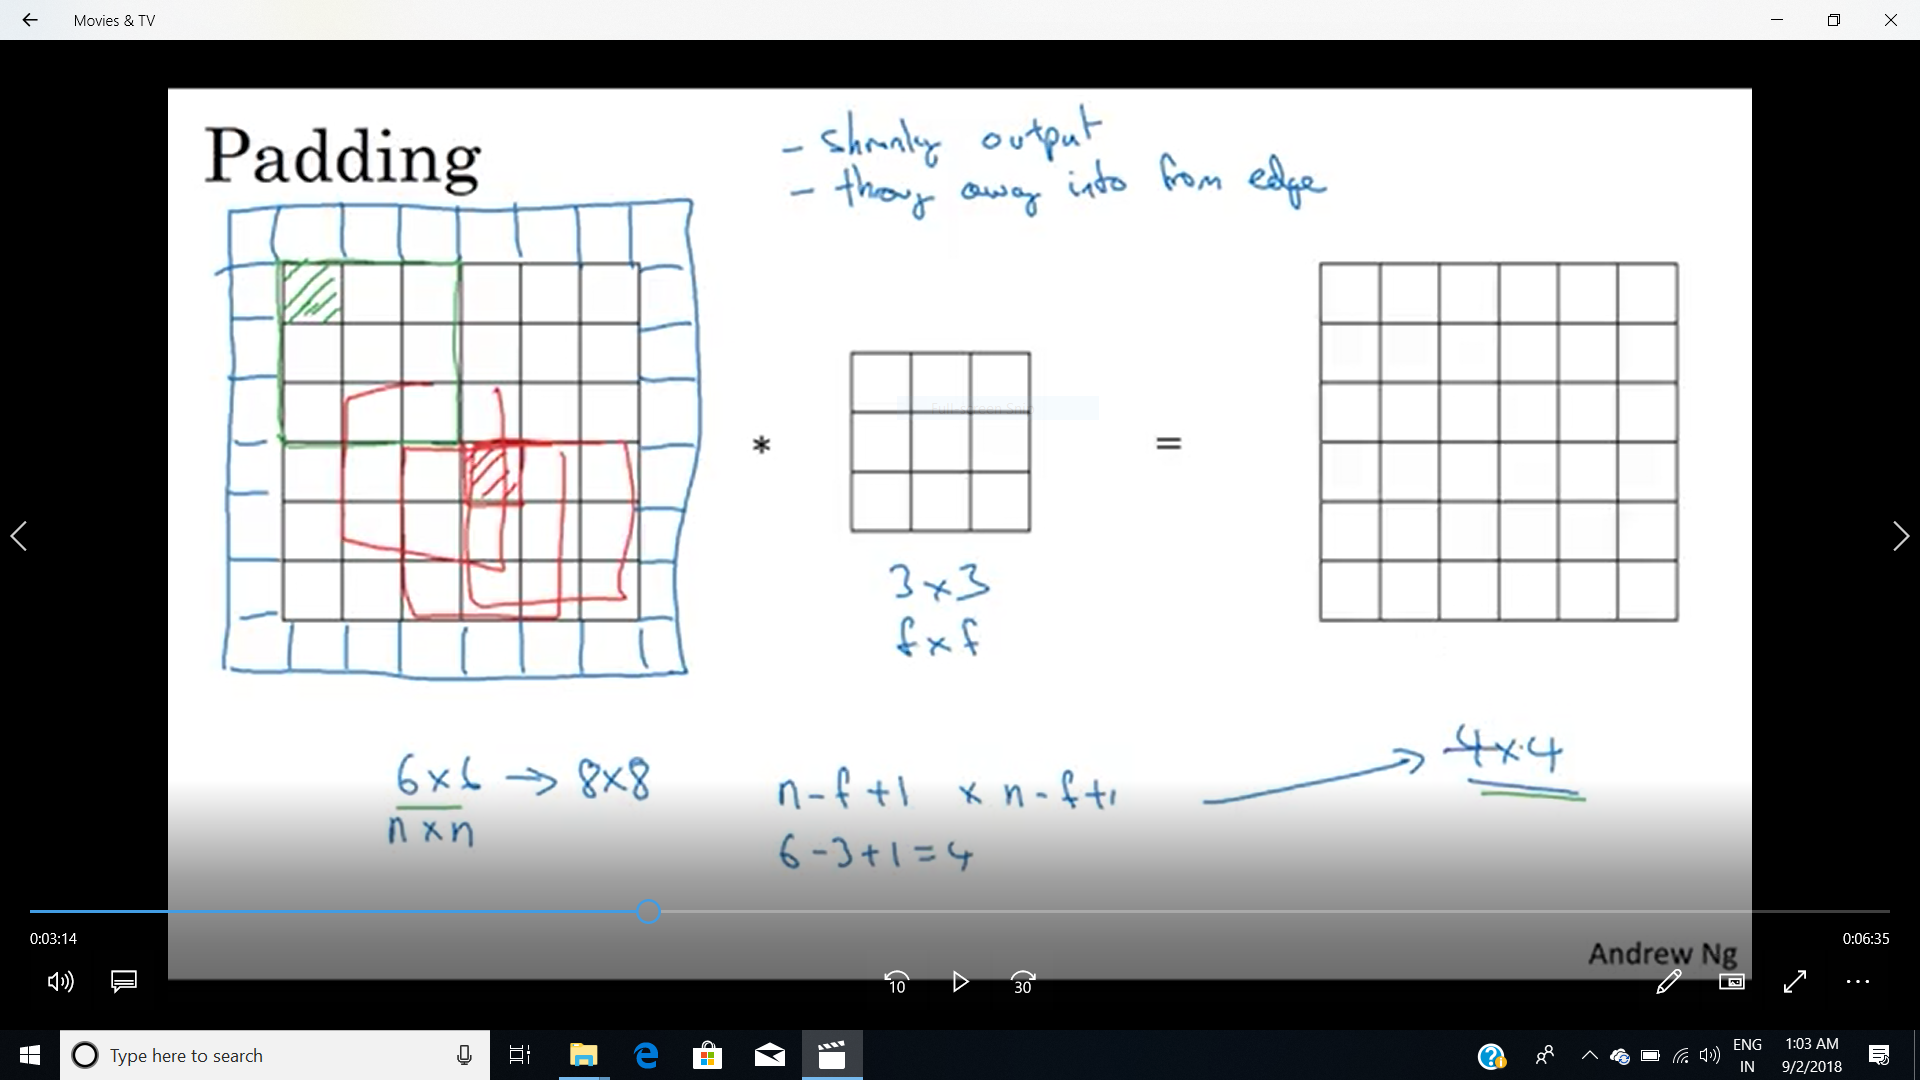 Movies & TV
Padding
- shrinky output
- throw away info from edge
*
=
3 x 3
f x f
6x6 → 8x8
n x n
n-f+1 x n-f+1
6-3+1=4
4x4
0:03:14
0:06:35
Andrew Ng
10
30
Type here to search
ENG
IN
1:03 AM
9/2/2018